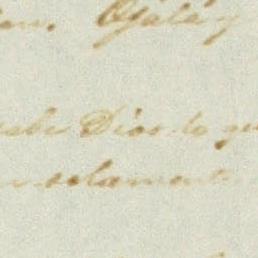 Ojalá y
sabe Dios lo que
solamente